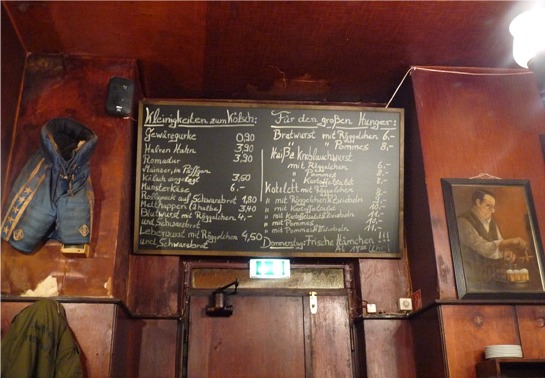 Kleinigkeiten zum Kölsch:
Gewürzgurke 0,90
Halven Hahn 3,90
Romadur 3,90
Mainzer, im Päffgen
Kölsch angelegt 3,60
Kunsterkäse 6.-
Rollipack auf Schwarzbrot 1,80
Metthappen (2 halbe) 3,40
Blutwurst mit Röggelchen 4,-
und Schwarzbrot
Leberwurst mit Röggelchen 4,50
und Schwarzbrot
Für den großen Hunger:
Bratwurst mit Röggelchen 6.-
" " Pommes 8,-
Heiße Knoblauchwurst
mit Röggelchen 6.-
" Pommes
" Kartoffelsalat
Kotelett mit Röggelchen
" mit Röggelchen & Zwiebeln
" mit Kartoffelsalat
" mit Kartoffelsalat & Zwiebeln 11.-
" mit Pommes
" mit Pommes & Zwiebeln 11.-
Donnerstag frische Hämchen !!!
Ab 17 Uhr